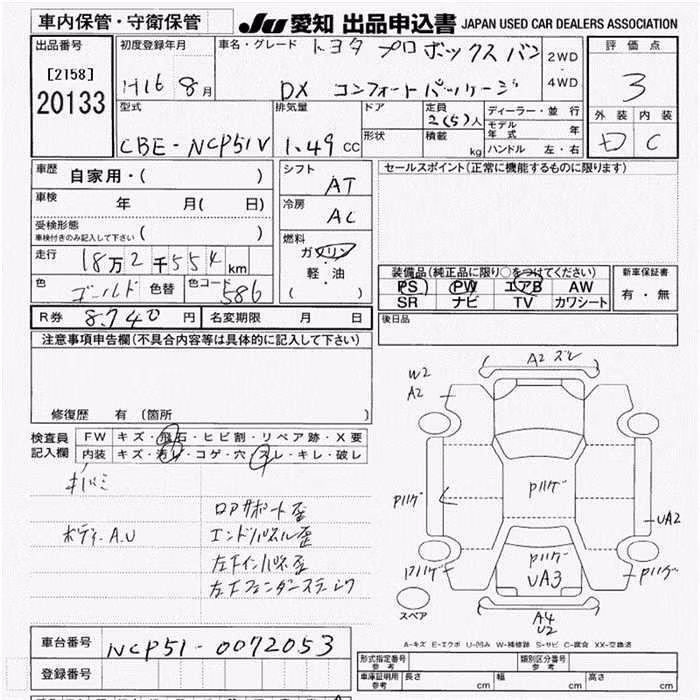 車内保管・守衛保管
JU 愛知 出品申込書 JAPAN USED CAR DEALERS ASSOCIATION
出品番号
[2158]
20133
初度登録年月
H16 8月
車名・グレード
トヨタ プロボックスバン
DX コンフォートパッケージ
2WD
・
4WD
評価点
3
外装 内装
D C
型式
CBE-NCP51V
排気量
1.49 cc
ドア
形状
定員
2(5)人
積載
kg
ディーラー・並行
モデル年式 年
ハンドル 左・右
車歴
自家用・( )
車検
年 月( 日)
受検形態
車検付きのみ記入して下さい ( )
走行
18万2千554km
色
ゴールド
色替
色コード
586
シフト
AT
冷房
AC
燃料
ガソリン
軽・油
( )
セールスポイント(正常に機能するものに限ります)
装備品(純正品に限り○をつけてください)
PS PW エアB AW
SR ナビ TV カワシート
新車保証書
有・無
後日品
R券 8,740円
名変期限 月 日
注意事項申告欄(不具合内容等は具体的に記入して下さい)
修復歴 有(箇所 )
検査員
記入欄
FW キズ・飛石・ヒビ割・リペア跡・X要
内装 キズ・汚レ・コゲ・穴・スレ・キレ・破レ
ボディーA.U
ロアサポート歪
エンドパネル歪
A2 ズレ
W2
A2
Pハゲ
Pハゲ
UA2
Pハゲ
Pハゲ
UA3
Pハゲ
スペア
A4
U2
A-キズ E-エクボ U-凹み W-補修跡 S-サビ C-腐食 XX-交換済
車台番号
NCP51-0072053
登録番号
形式指定番号
参考
類別区分番号
参考
車庫証明用
参考
長さ cm
幅 cm
高さ cm